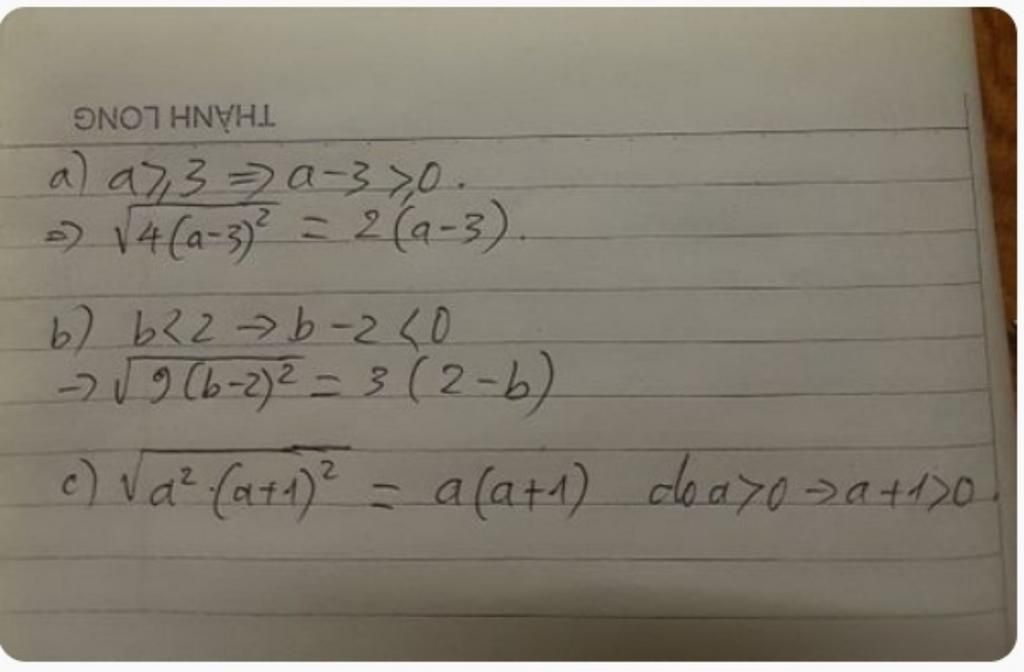 THÀNH LONG
a) a ⩾ 3 ⇒ a - 3 ⩾ 0.
⇒ √4(a-3)² = 2(a-3).
b) b < 2 → b - 2 < 0
→ √9(b-2)² = 3(2-b)
c) √a².(a+1)² = a(a+1) do a > 0 → a+1 > 0.